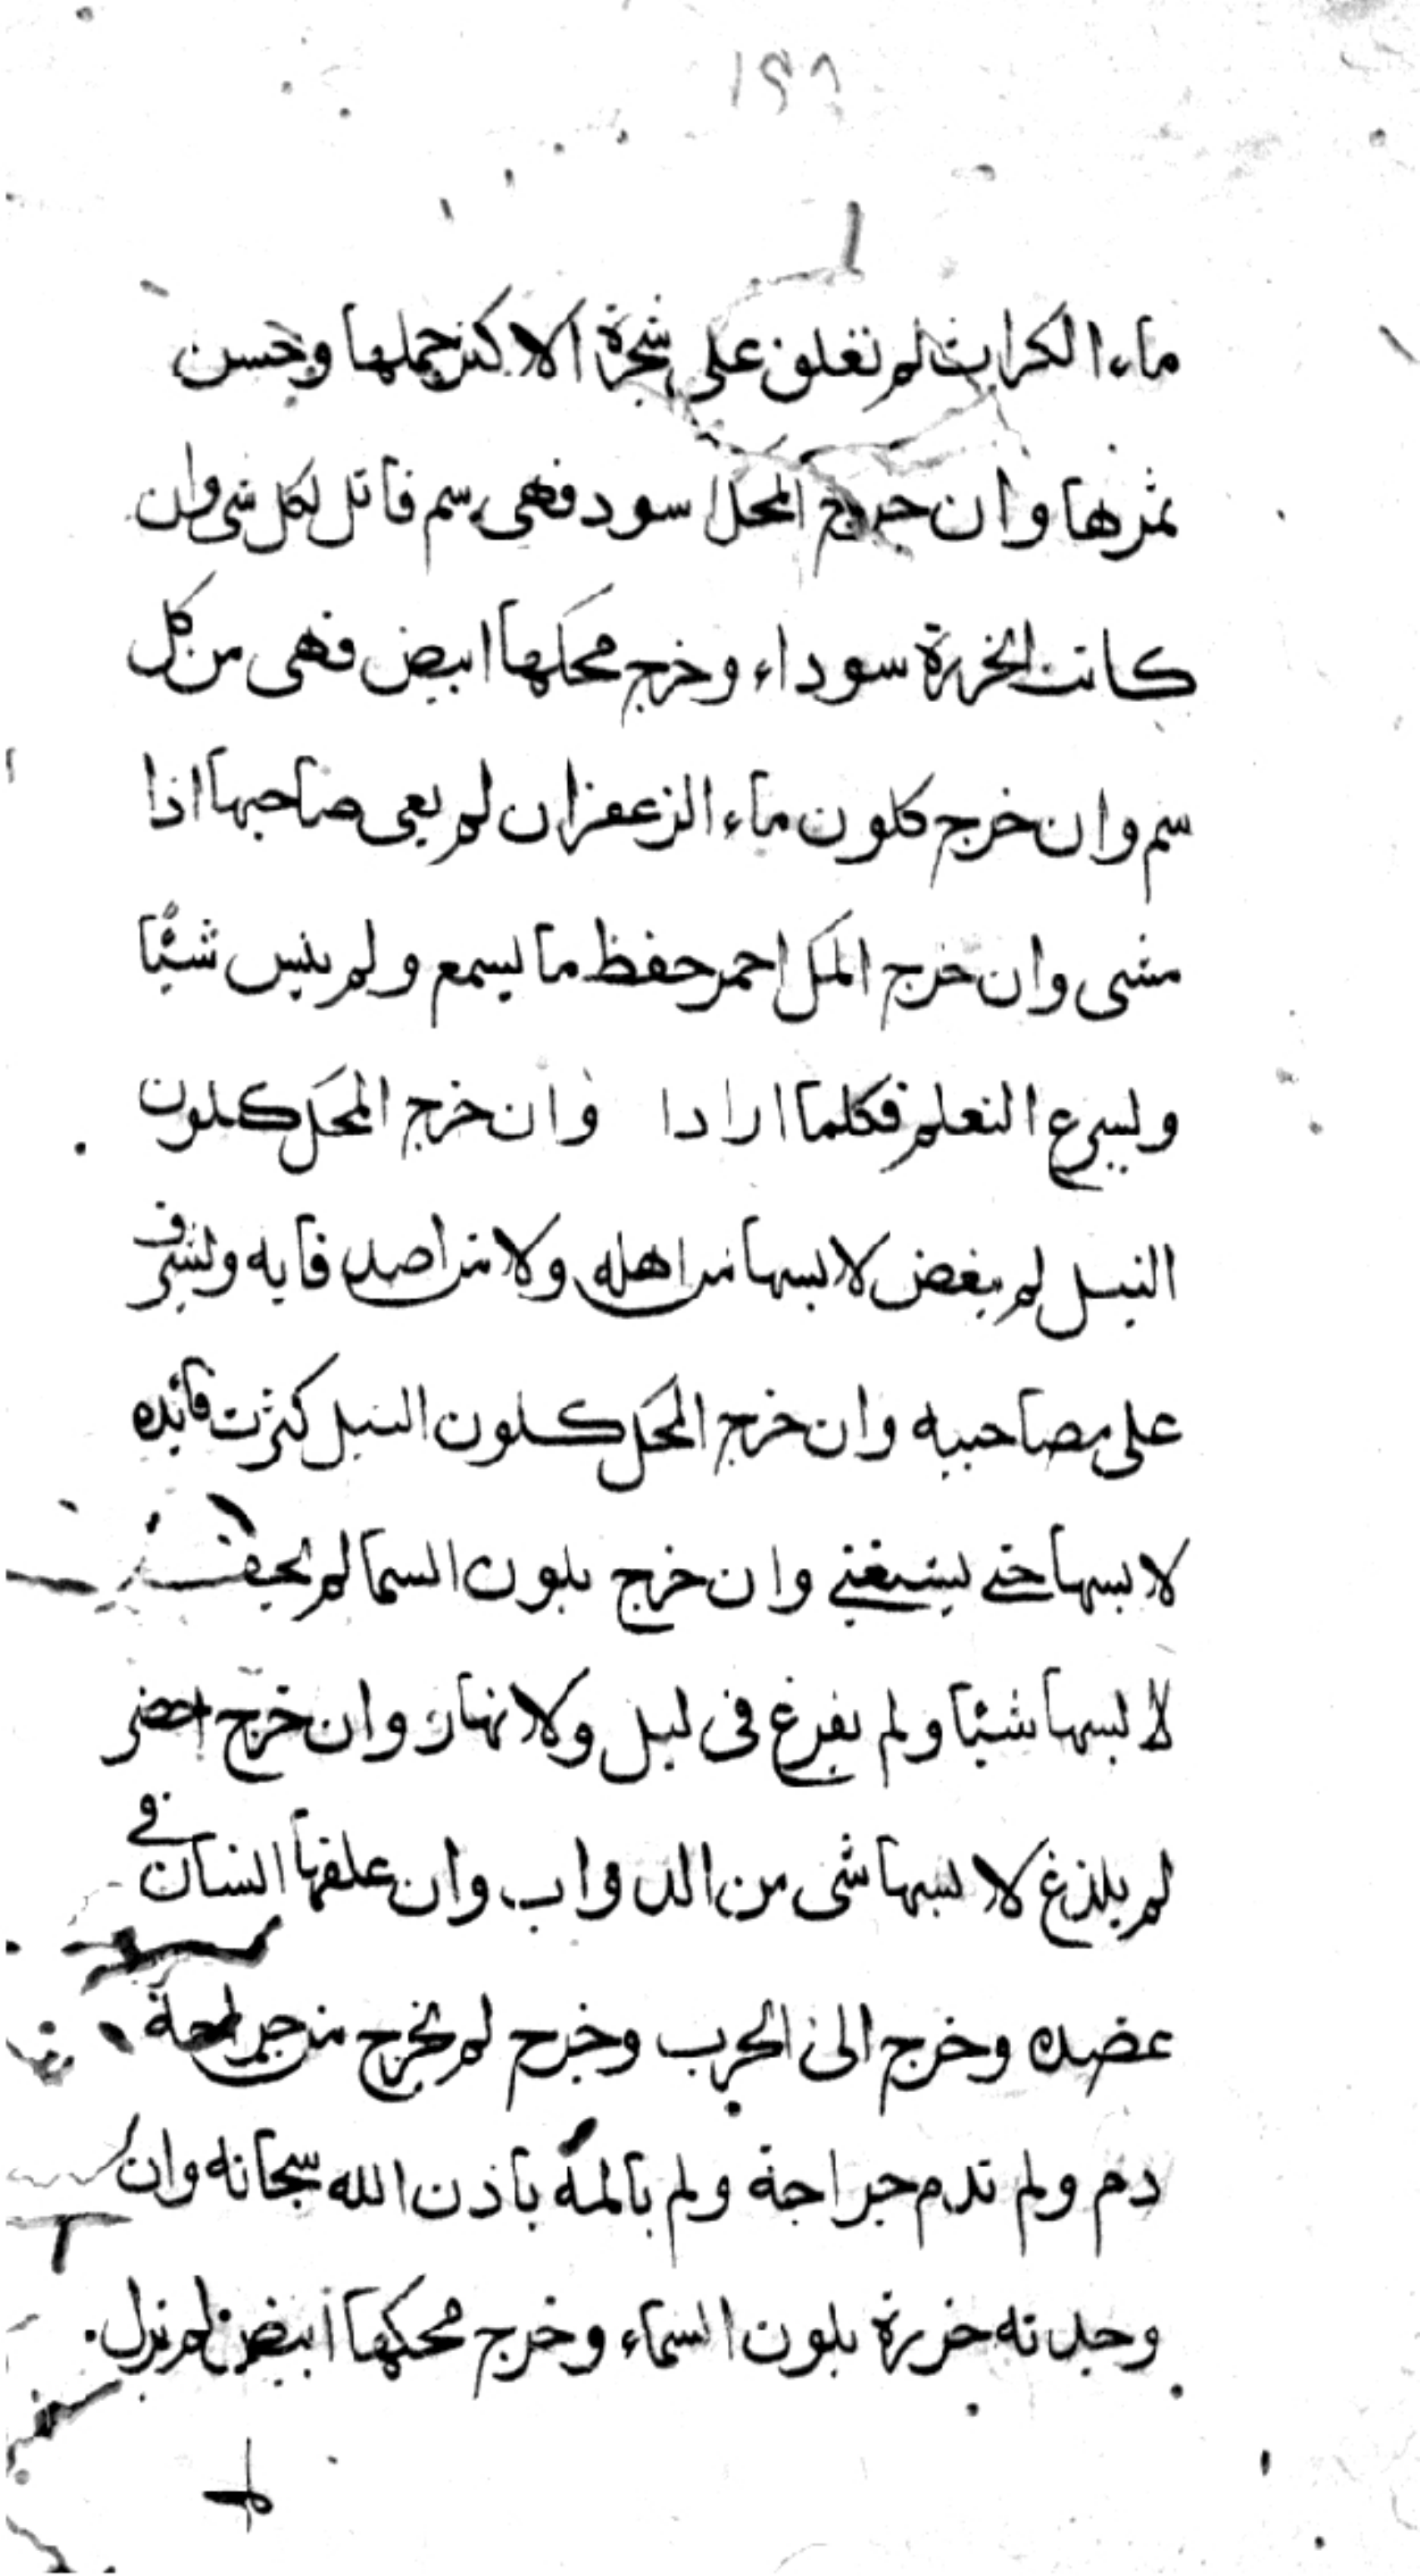 ١٩٨
ماء الكراث لم تعلق على شجرة الا كثر حملها وحسن
ثمرها وان خرج المحك اسود فهى سم قاتل لكل شى وان
كانت الخرزة سوداء وخرج محكها ابيض فهى من كل
سم وان خرج كلون ماء الزعفران لم يعى صاحبها اذا
مشى وان خرج المحك احمر حفظ ما يسمع ولم ينس شيئا
ويسرع التعلم فكلما ارادا وان خرج المحك كلون
النيل لم يبغض لابسها من اهله ولا من اصدقايه ويشرف
على مصاحبيه وان خرج المحك كلون النيل كثرت فائده
لابسها حتى يستغنى وان خرج بلون السما لم يخف
لابسها شيئا ولم يفزغ فى ليل ولا نهار وان خرج اخضر
لم يلذغ لابسها شى من الدواب وان علقها انسان فى
عضده وخرج الى الحرب وجرح لم يخرج من جراحة
دم ولم تدم جراحة ولم يالمه باذن الله سبحانه وان
وجدته خرزة بلون السماء وخرج محكها ابيض لم يزل